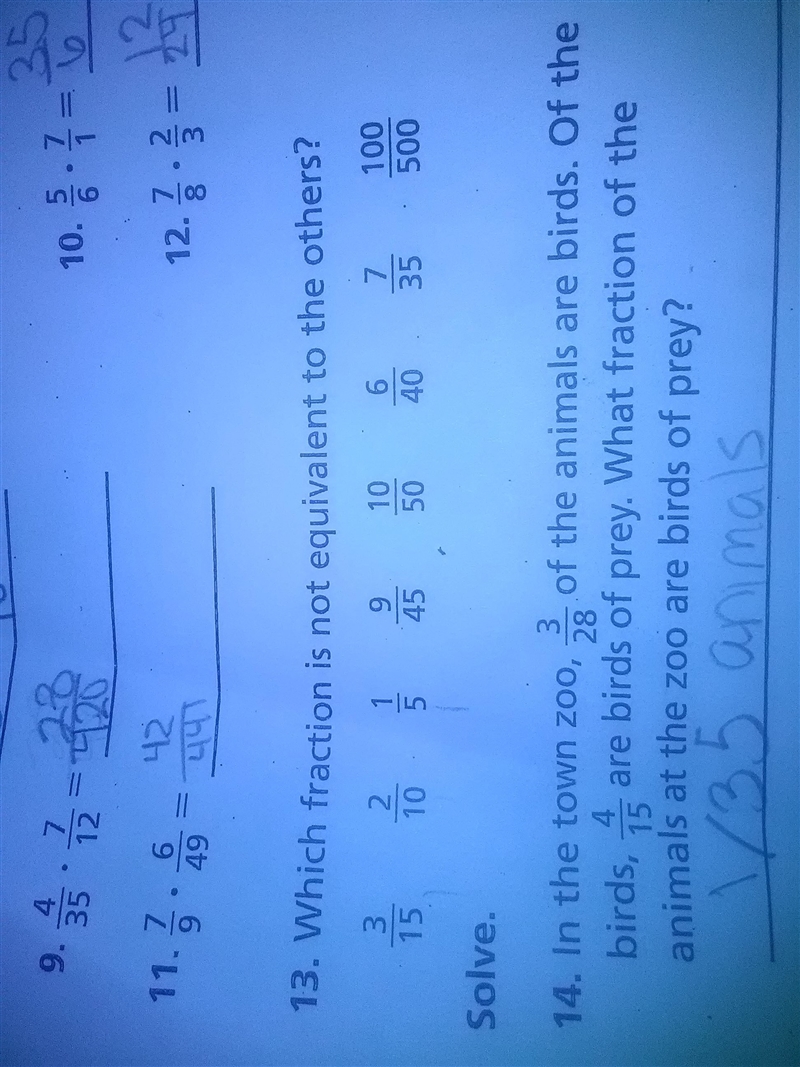 9. 4/35 · 7/12 = 28/420
10. 5/6 · 7/1 = 35/6
11. 7/9 · 6/49 = 42/441
12. 7/8 · 2/3 =
13. Which fraction is not equivalent to the others?
3/15 2/10 1/5 9/45 10/50 6/40 7/35 100/500
Solve.
14. In the town zoo, 3/28 of the animals are birds. Of the
birds, 4/15 are birds of prey. What fraction of the
animals at the zoo are birds of prey?
1/35 animals